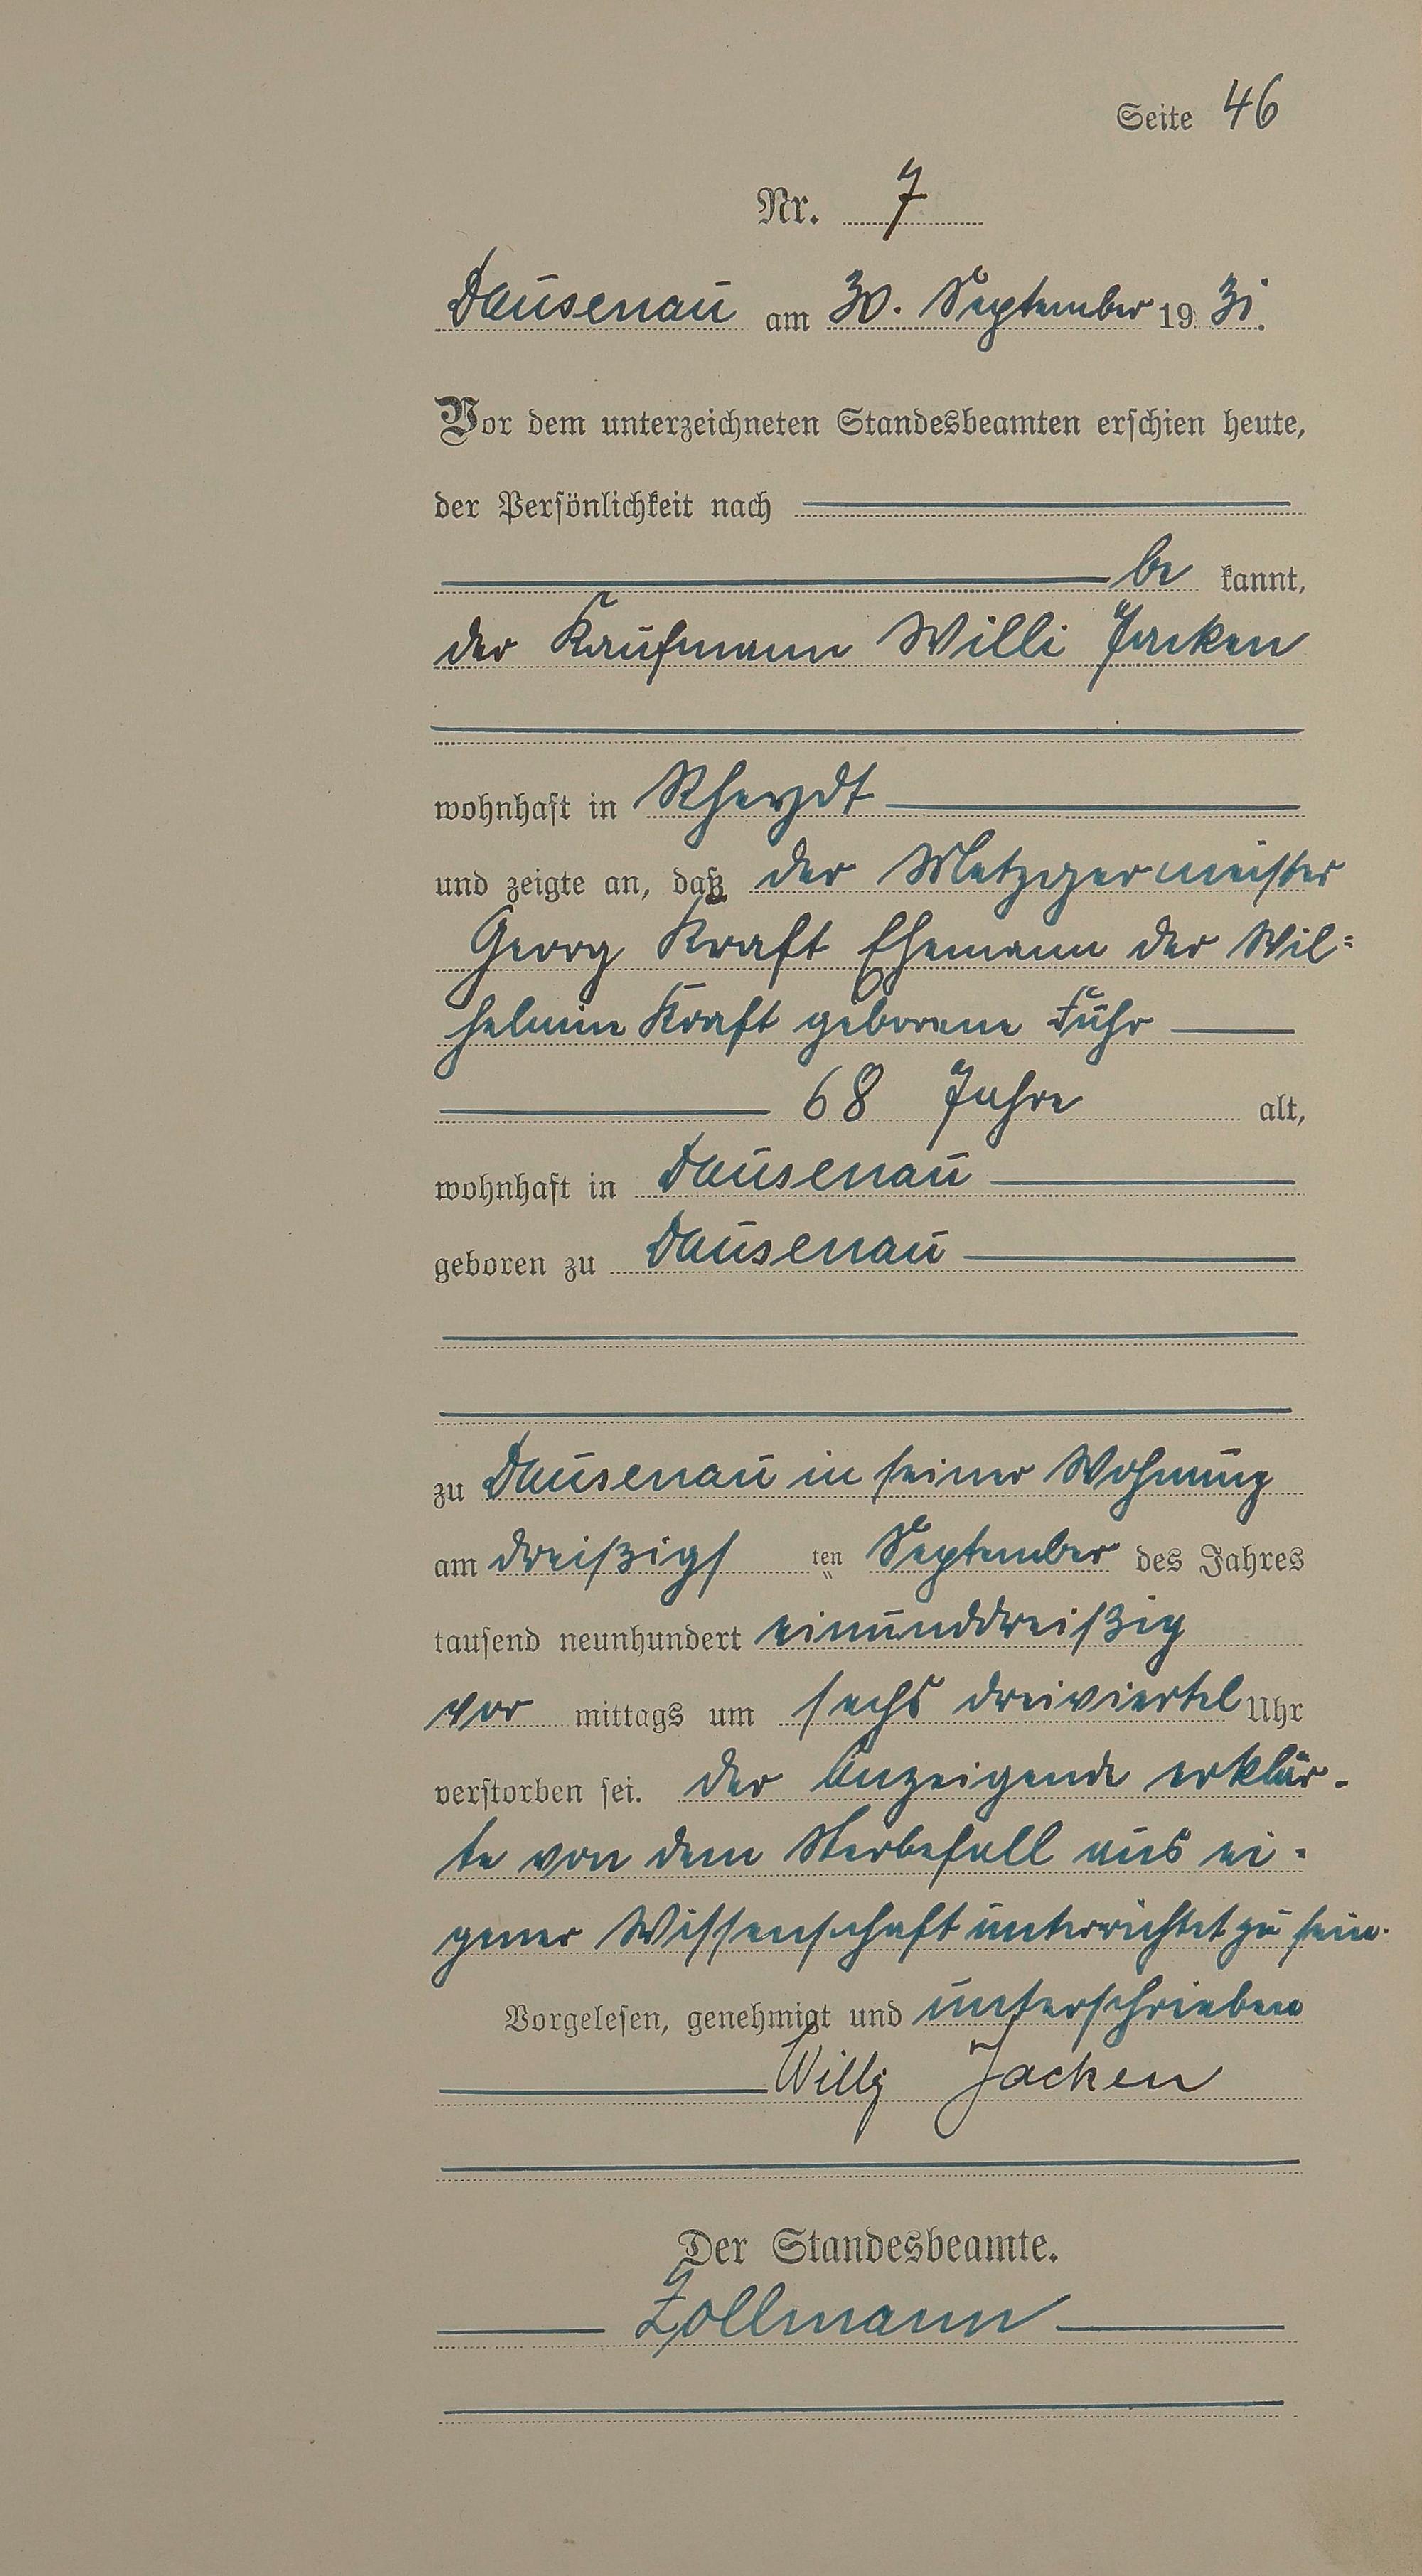 Seite 46
Nr. 7
Dausenau am 30. September 19 31.
Vor dem unterzeichneten Standesbeamten erschien heute,
der Persönlichkeit nach
be kannt,
der Kaufmann Willi Jacken
wohnhaft in Rheydt
und zeigte an, daß der Metzgermeister
Georg Kraft Ehemann der Wil=
helmine Kraft geborene Führ
68 Jahre alt,
wohnhaft in Dausenau
geboren zu Dausenau
zu Dausenau in seiner Wohnung
am dreißigs ten September des Jahres
tausend neunhundert einunddreißig
vor mittags um sechs dreiviertel Uhr
verstorben sei. Der Anzeigende erklär-
te von dem Sterbefall aus ei=
gener Wissenschaft unterrichtet zu sein.
Vorgelesen, genehmigt und unterschrieben
Willy Jacken
Der Standesbeamte.
Zollmann